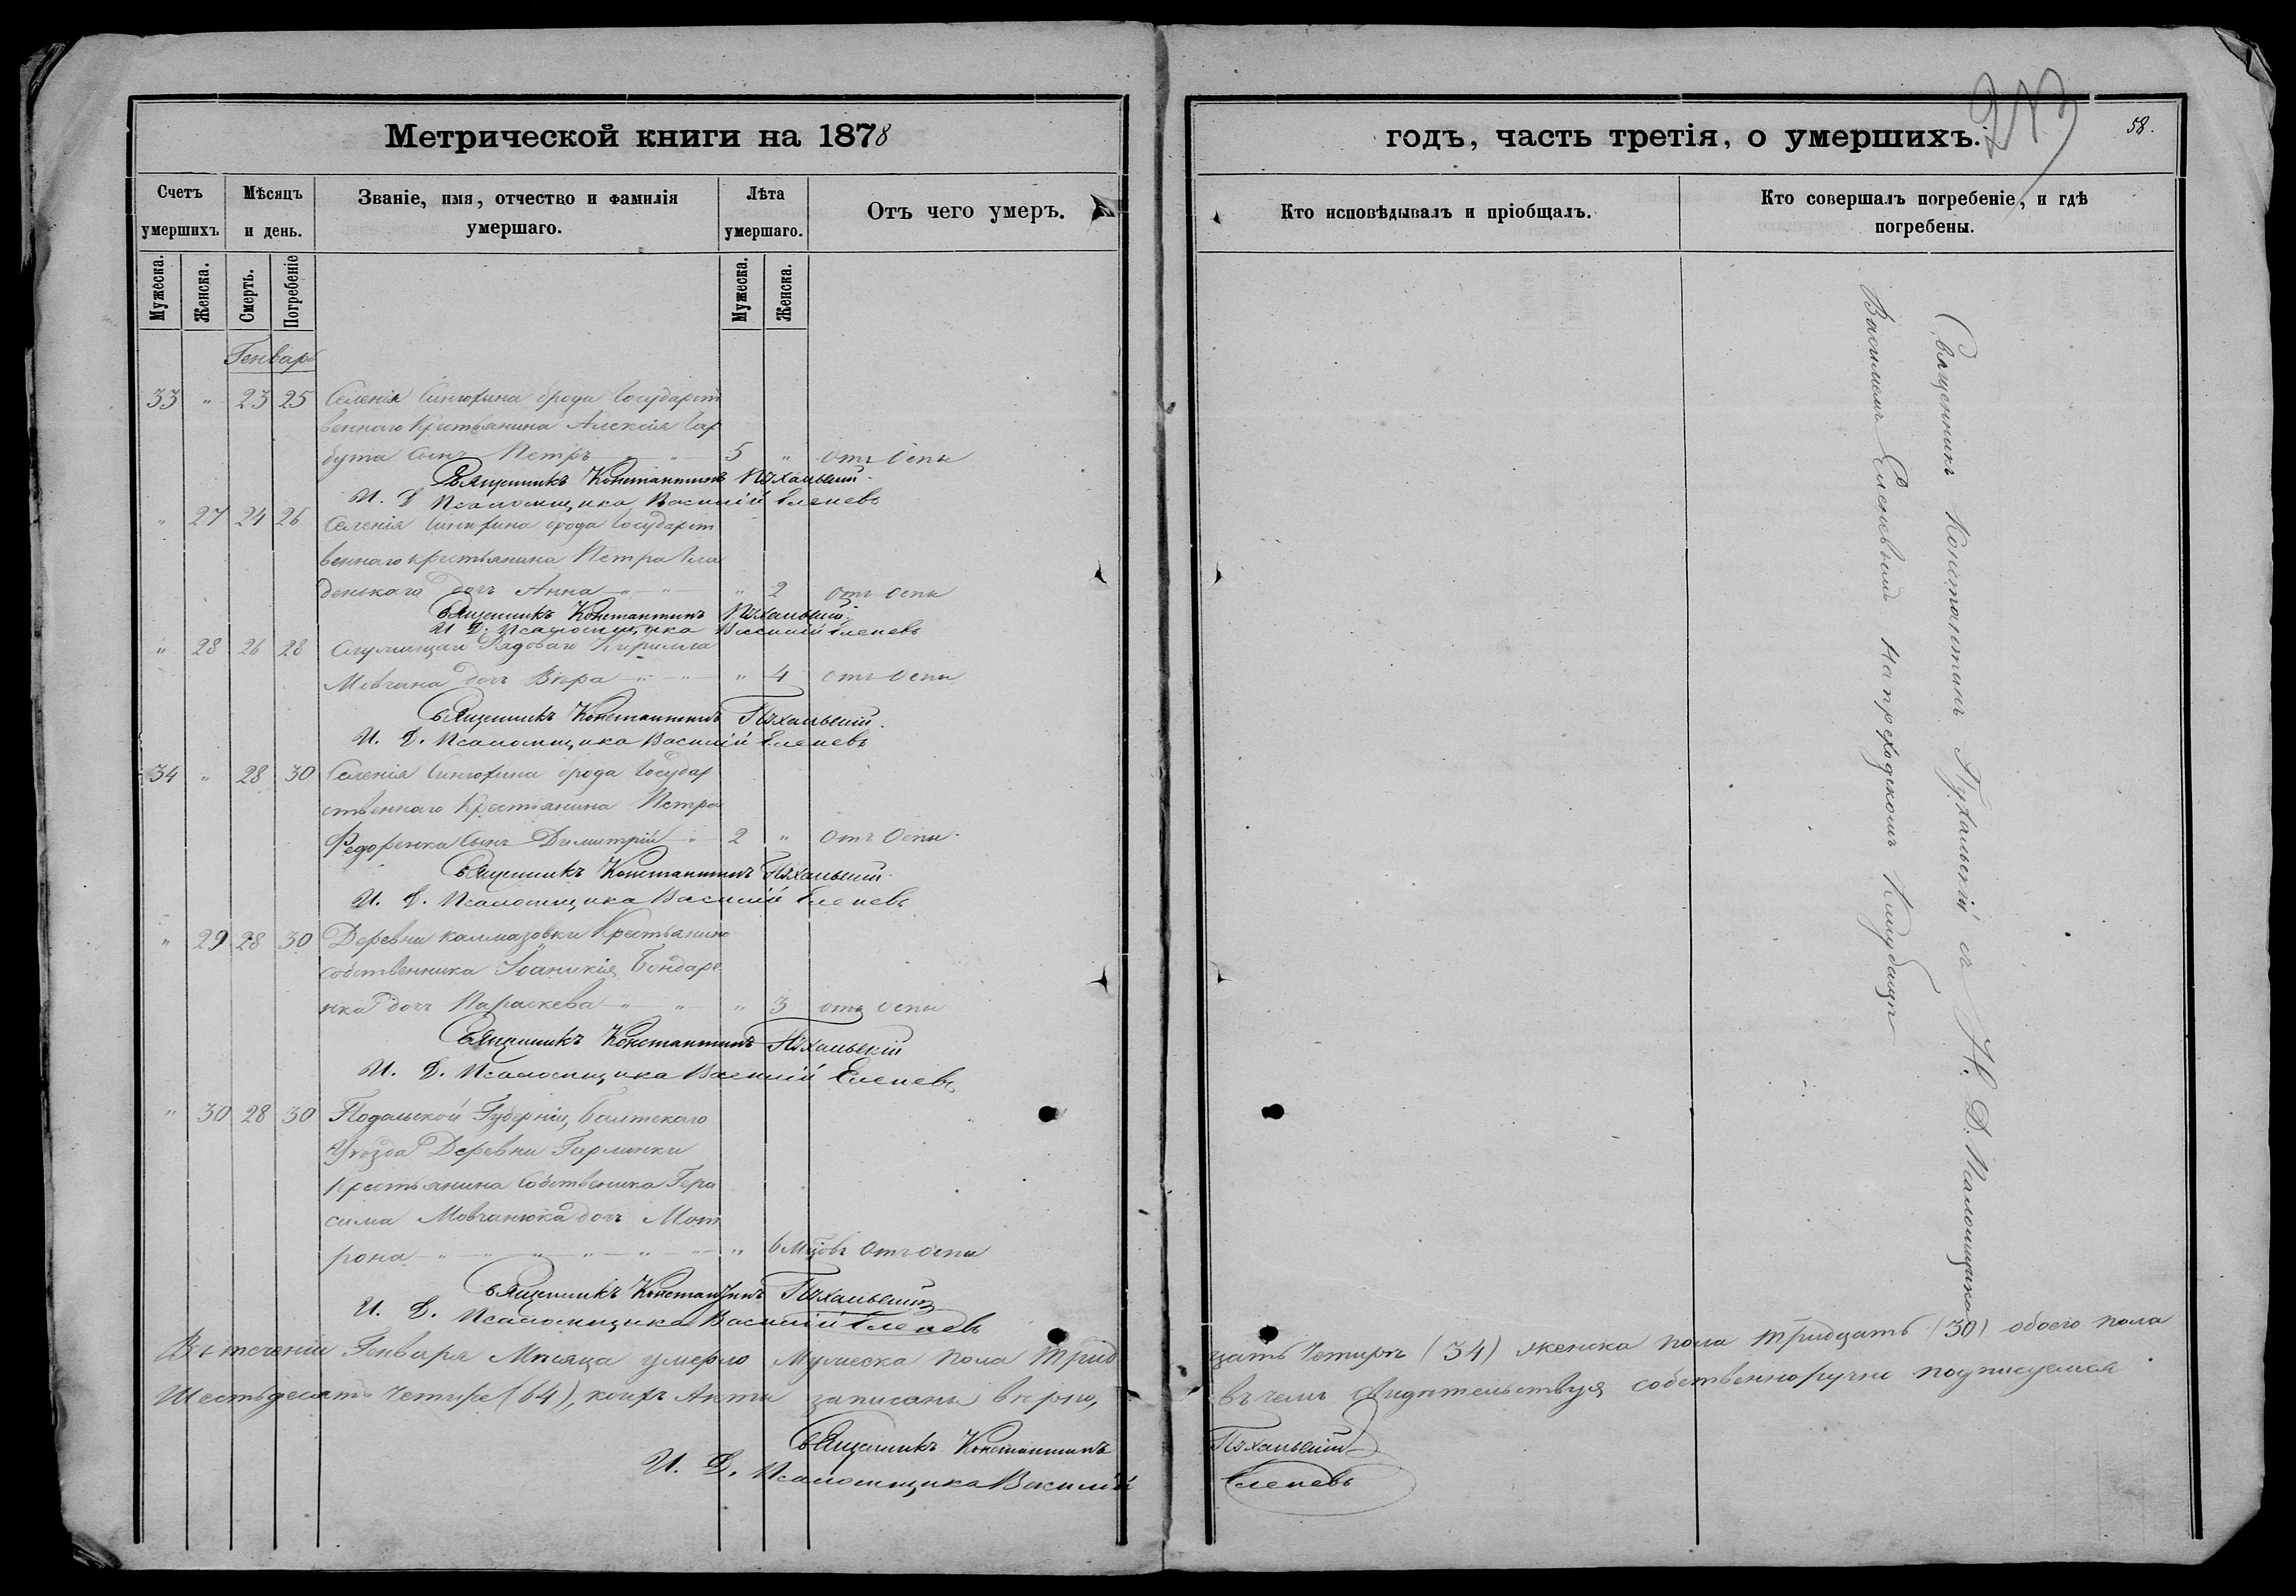 Метрической книги на 1878
годъ, часть третія, о умершихъ.
58.
Счетъ умершихъ
Мѣсяцъ и день.
Званіе, имя, отчество и фамилія умершаго.
Лѣта умершаго.
Отъ чего умеръ.
Кто исповѣдывалъ и пріобщалъ.
Кто совершалъ погребеніе, и гдѣ погребены.
Мужеска.
Женска.
Смерть.
Погребеніе
Мужеска.
Женска.
Генварь
33 " 23 25 Селенія Синюхина брода Государст
веннаго Крестьянина Алексія Гар
бута Сынъ Петръ 5 " отъ Оспы
Священникъ Константинъ Пухальскій
И. Д. Псаломщика Василій Еленевъ
" 27 24 26 Селенія Синюхина брода Государст
веннаго крестьянина Петра Гла
денькаго дочь Анна " 2 отъ Оспы
Священникъ Константинъ Пухальскій
И. Д. Псаломщика Василій Еленевъ
" 28 26 28 Служащаго Рядоваго Кирилла
Мовчана дочь Вѣра " 4 отъ Оспы
Священникъ Константинъ Пухальскій
И. Д. Псаломщика Василій Еленевъ
34 " 28 30 Селенія Синюхина брода Государ
ственнаго Крестьянина Петра
Федоренка Сынъ Димитрій 2 " Отъ Оспы
Священникъ Константинъ Пухальскій
И. Д. Псаломщика Василій Еленевъ
" 29 28 30 Деревни Калмазовки Крестьянина
собственника Іоаникія Бондаре
нка дочь Параскева " 3 отъ Оспы
Священникъ Константинъ Пухальскій
И. Д. Псаломщика Василій Еленевъ
" 30 28 30 Подольской Губерніи, Балтскаго
Уѣзда Деревни
Крестьянина Собственика Гера
сима Мовчанюка дочь Мот
рона " 6 Мцовъ Отъ оспы
Священникъ Константинъ Пухальскій
И. Д. Псаломщика Василій Еленевъ
Священникъ Константинъ Пухальскій съ И. Д. Псаломщика
Василіемъ Еленевымъ на приходскомъ Кладбищѣ
Въ теченіи Генваря Мѣсяца умерло Мужеска пола трид
цать Четыре (34) женска пола тридцать (30) обоего пола
Шестьдесятъ Четыре (64), коихъ Акты записаны вѣрно,
въ чемъ свидѣтельствуя собственноручно подписуемся
Священникъ Константинъ Пухальскій
И. Д. Псаломщика Василій Еленевъ